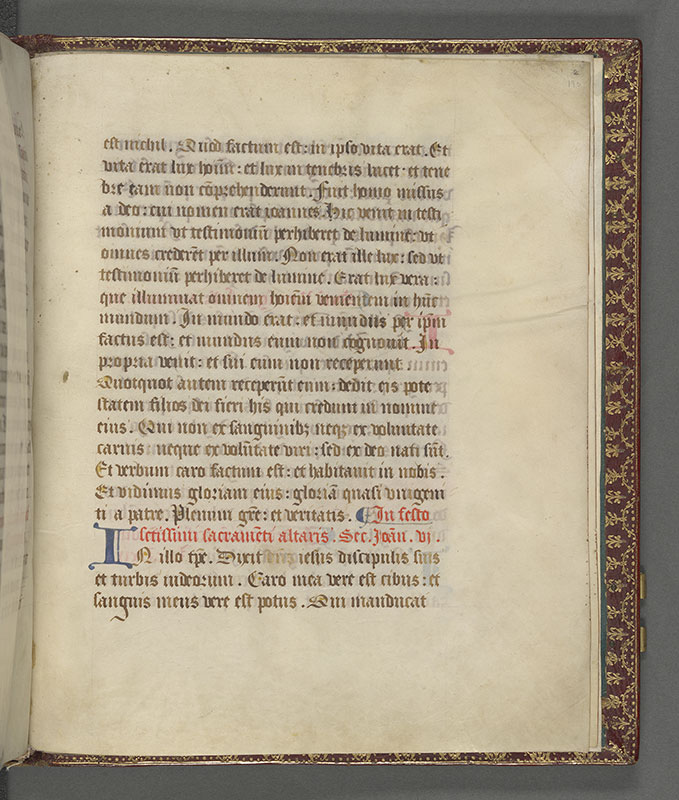 est nichil. Quod factum est: in ipso vita erat. Et
vita erat lux hoīm: et lux in tenebris lucet. et tene
bre eam non cōprehenderunt. Fuit homo missus
a deo: cui nomen erat ioannes. Hic venit in testi
monium vt testimoniū perhiberet de lumine: vt
omnes crederēt per illum. Non erat ille lux: sed vt
testimoniū perhiberet de lumine. Erat lux vera:
que illuminat omnem hoīem venientem in hūc
mundum. In mundo erat: et mundus per ip̄m
factus est: et mundus eum non cognouit. In
propria venit: et sui eum non receperunt.
Quotquot autem receperūt eum: dedit eis pote
statem filios dei fieri his qui credunt in nomine
eius. Qui non ex sanguinibꝫ neqꝫ ex voluntate
carnis neque ex volūtate viri: sed ex deo nati sūt.
Et verbum caro factum est: et habitauit in nobis.
Et vidimus gloriam eius: gloriā quasi vnigeni
ti a patre. Plenum grē: et veritatis. ¶ In festo
sctissimi sacramēti altaris. Sec. Joān. vj.
IN illo tp̄e. Dixit iesus discipulis suis
et turbis iudeorum. Caro mea vere est cibus: et
sanguis meus vere est potus. Qui manducat